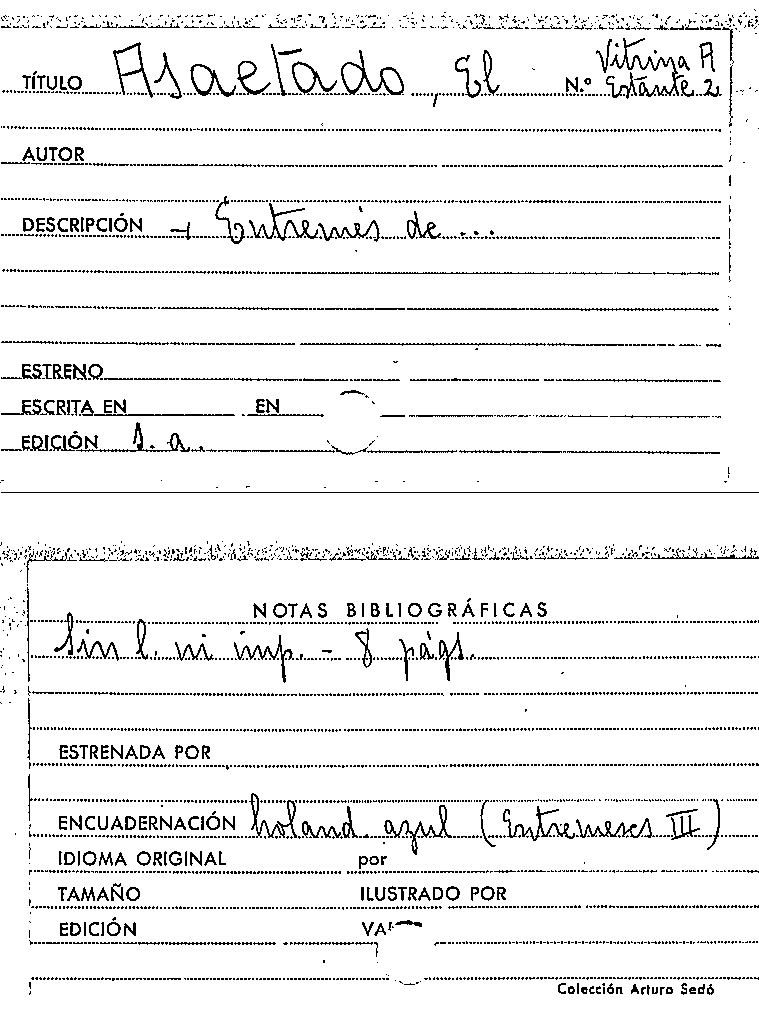 Vitrina A
TÍTULO Asaetado, El N.º Estante 2
AUTOR
DESCRIPCIÓN → Entremés de ...
ESTRENO
ESCRITA EN EN
EDICIÓN s. a.
NOTAS BIBLIOGRÁFICAS
Sin l. ni imp. - 8 págs.
ESTRENADA POR
ENCUADERNACIÓN holand. azul (Entremeses III)
IDIOMA ORIGINAL por
TAMAÑO ILUSTRADO POR
EDICIÓN
Colección Arturo Sedó